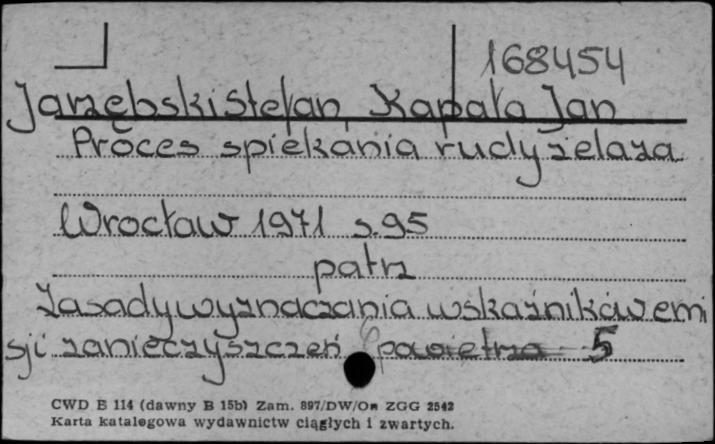 168454
Jarzębski Stefan, Kapała Jan
Proces spiekania rudy żelaza
Wrocław 1971 s. 95
patrz
Zasady wyznaczania wskaźników emi
sji zanieczyszczeń powietrza 5
CWD B 114 (dawny B 15b) Zam. 897/DW/On ZGG 2542
Karta katalogowa wydawnictw ciągłych i zwartych.